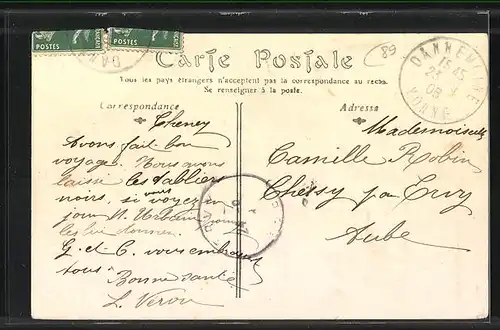 POSTES POSTES
89
Carte Postale
Tous les pays étrangers n'acceptent pas la correspondance au recto
Se renseigner à la poste.
Correspondance
Adresse
DANNEMOINE
15 45
08
YONNE
Cheney
Avons fait bon
voyage. Nous avons
laissé les tabliers
noirs, si voyez un
jour M. Urbain
les lui donner.
G. et C. vous embrassent
tous
Bonne santé
L. Veron
Mademoiselle
Camille Robin
Chessy par Ervy
Aube